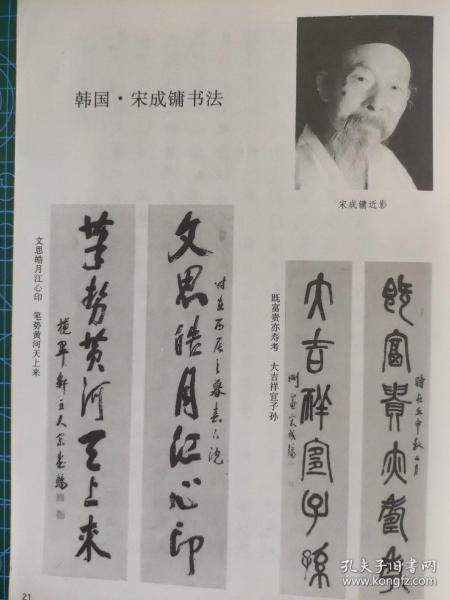 韩国·宋成镛书法
宋成镛近影
文思皓月江心印 笔势黄河天上来
文思皓月江心印
笔势黄河天上來
既富贵亦寿考 大吉祥宜子孙
既富貴亦壽考
大吉祥宜子孫
21
孔夫子旧书网